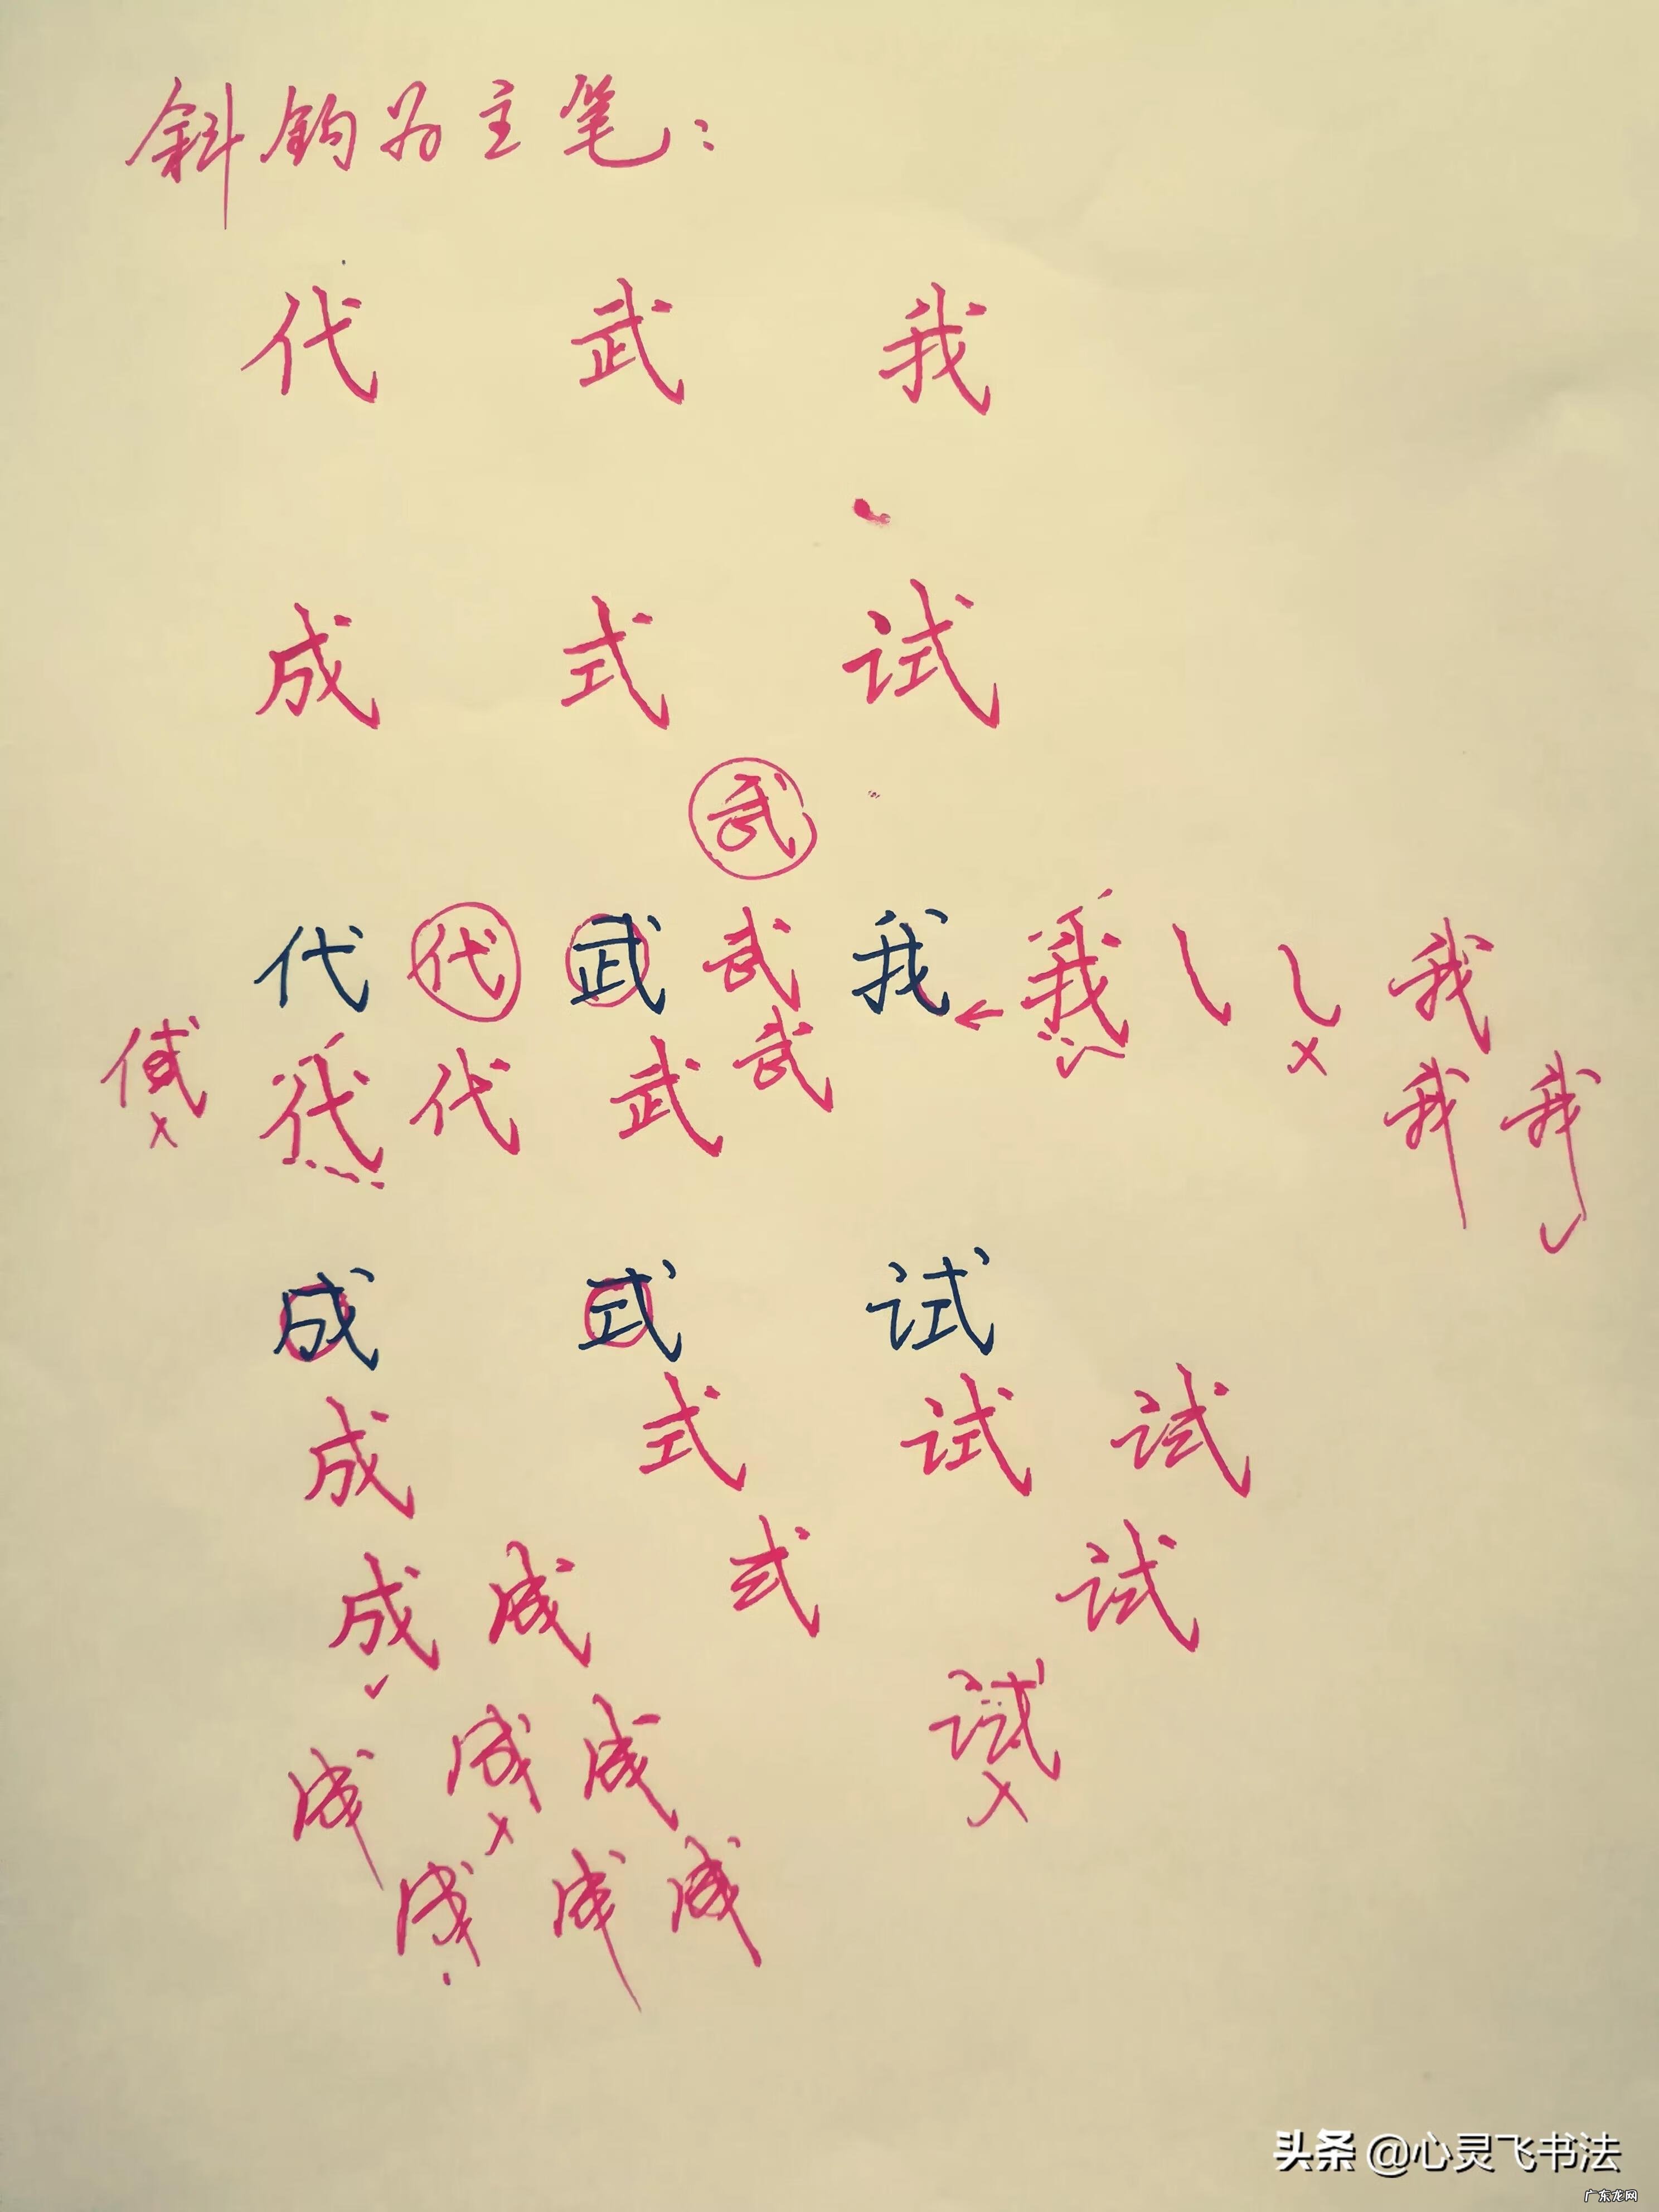 斜钩为主笔：
代 武 我
成 式 试
武
代 代 武 武 我 我 我
代 代 武 武 我 我
成 式 试
成 式 试 试
成 成 式 试
成 成 成 试
成 成 成
头条 @心灵飞书法
广东龙网